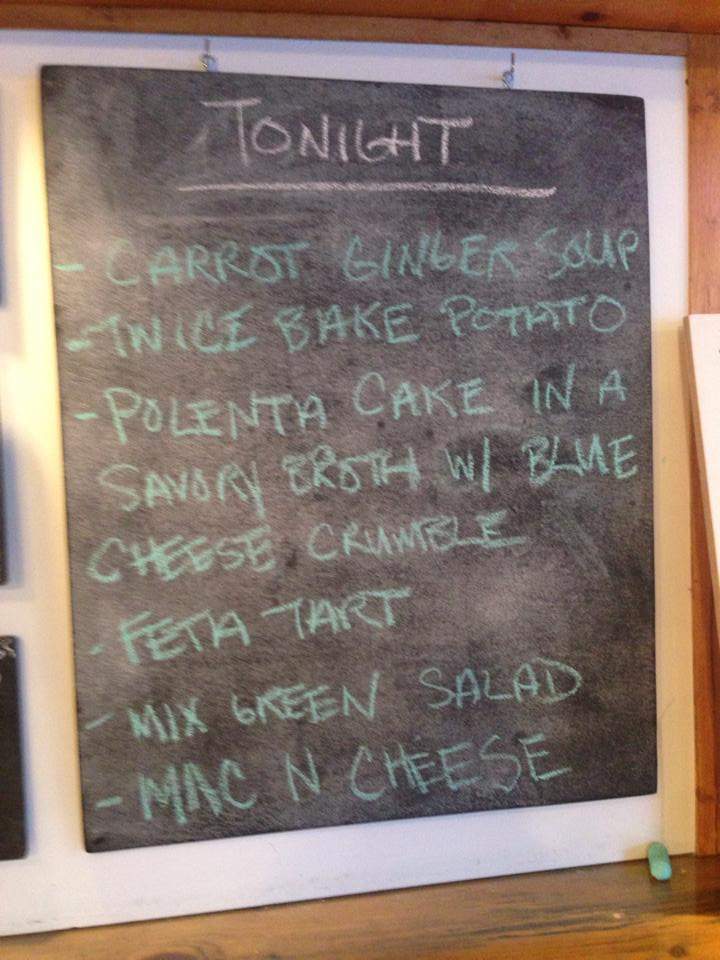 TONIGHT
- CARROT GINGER SOUP
- TWICE BAKE POTATO
- POLENTA CAKE IN A
SAVORY BROTH W/ BLUE
CHEESE CRUMBLE
- FETA TART
- MIX GREEN SALAD
- MAC N CHEESE